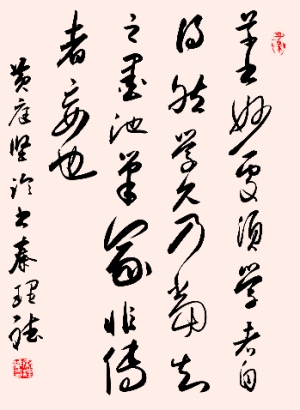 草书妙处须学者自
得然学久乃当知
之墨池笔冢非传
者妄也
黄庭坚论书秦理